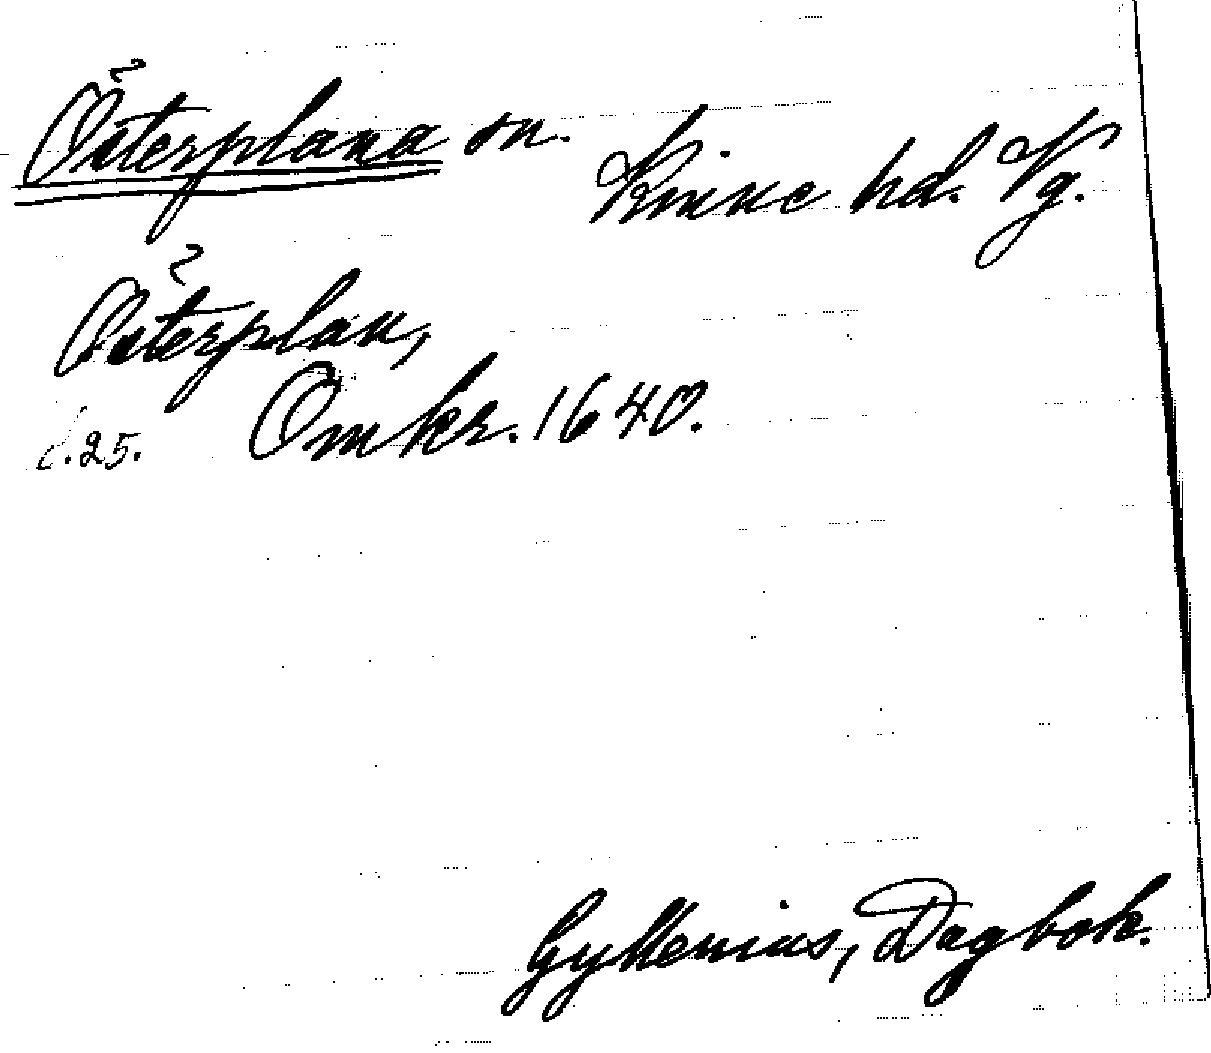 Österplana sn.
Kinne hd. Vg.
Österplan,
s. 25. Omkr. 1640.
Gyllenius, Dagbok.